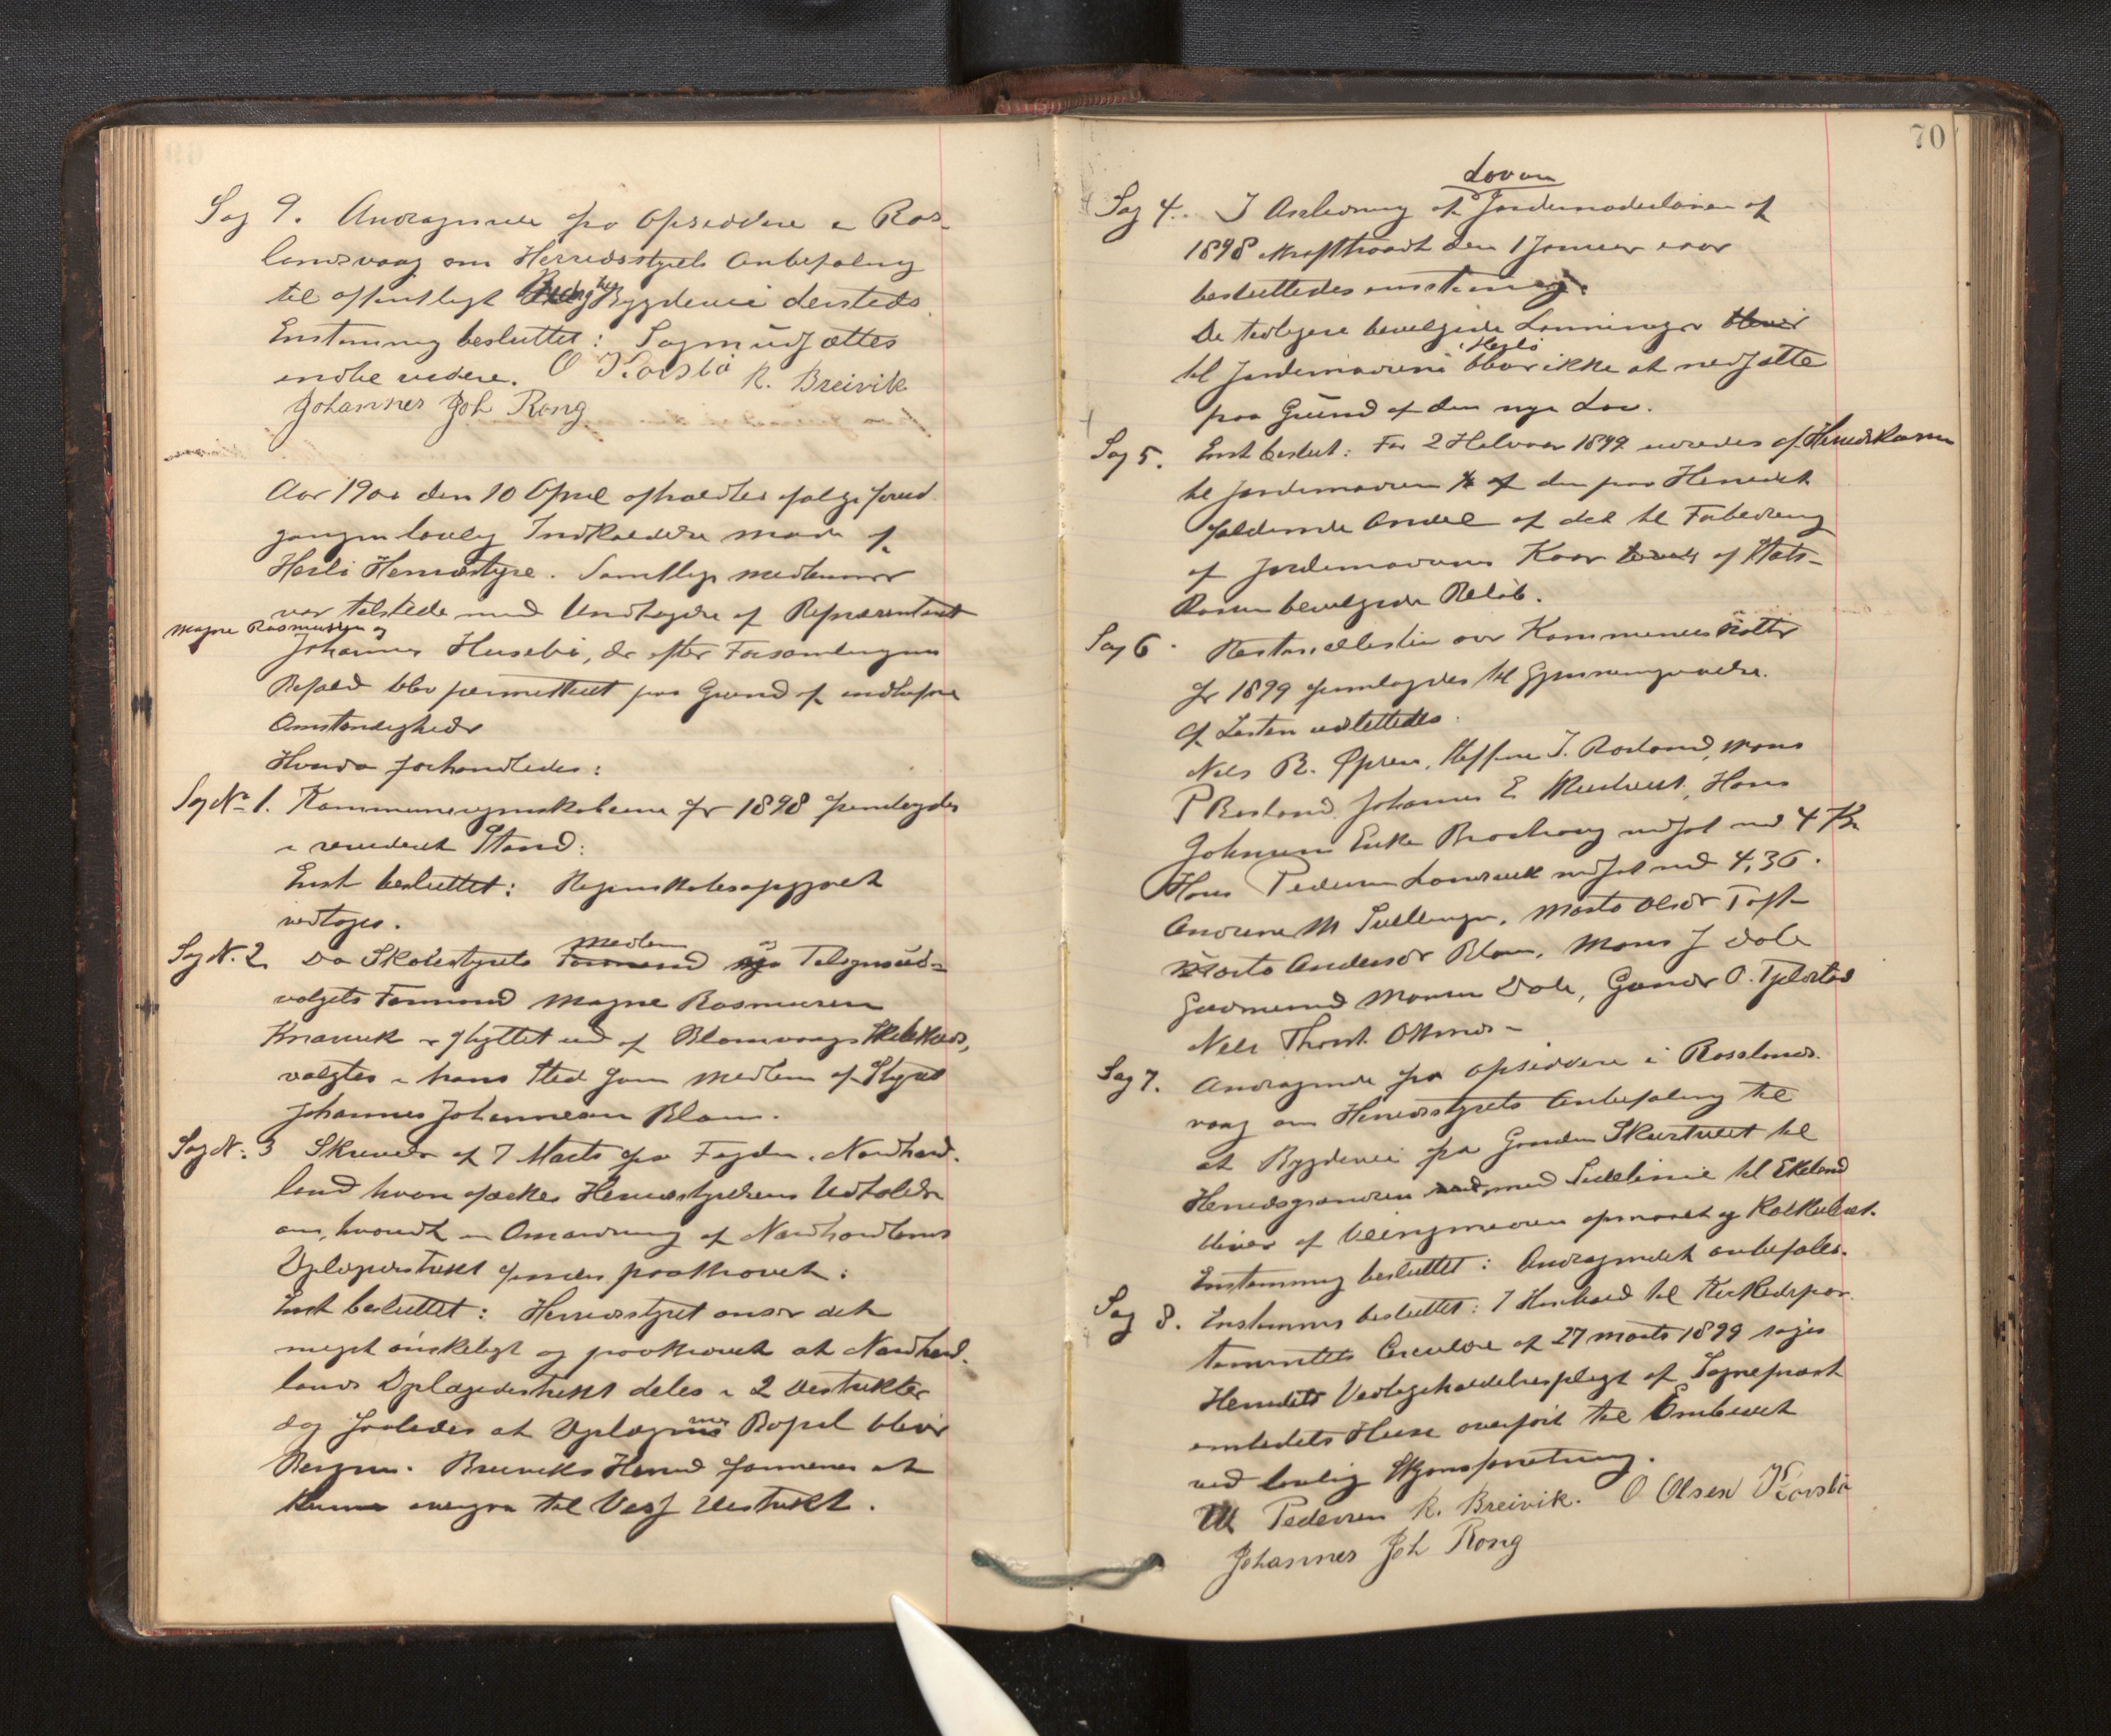 Sag 9. Andragende fra Opsiddere i Ros-
landsvaag om Herredsstyrets Anbefaling
til offentligt Bygdevei dersteds.
Enstemmig besluttet: Sagen udsættes
endu videre. O Korsbö R. Breivik
Johannes Joh Rong
Aar 1900 den 10 April afholdtes efter forud
gangen lovlig Indkaldelse møde af
Herlö Herredstyre. Samtlige medlemmer
var tilstede med Undtagelse af Repræsentant
Magne Rasmussen og
Johannes Husebö, der efter Forsamlingens
Befald blev permitteret paa Grund af indtrufne
Omstændigheder
Hvorda forhandledes:
Sag No 1. Kommuneregnskaberne for 1898 fremlagdes
i revideret Stand:
Enst besluttet: Regnskabsopgjøret
vedtages.
Sag N. 2 Da Skolestyrets Formand medlem og Tilsynsud-
valgets Formand Magne Rasmussen
Knarvik er flyttet ud af Blomvaags Skolekreds,
valgtes i hans Sted som medlem af Styret
Johannes Johannesen Blom.
Sag N: 3 Skrivelse af 7 Marts fra Fogden i Nordhord-
land hvori æskes Herredstyrets Udtalelse
om, hvorvidt en Omordning af Nordhordlands
Dyrlægedistrikt findes paakrævet:
Enst besluttet: Herredsstyret anser det
meget önskeligt og paakrævet at Nordhord-
lands Dyrlægedistrikt deles i 2 Distrikter
dog saaledes at Dyrlægernes Bopæl bliver
Bergen. Breiviks Herred formenes at
kunne overgaa til Vest Distrikt.
70
Loven
Sag 4. I Anledning af Jordemoderloven af
1898 Krafttraadt den 1 Januar iaar
besluttedes enstemmig:
De tidligere bevilgede Lønninger bliver
til Jordemødrene i Herlö bliver ikke at nedsætte
paa Grund af den nye Lov.
Sag 5. Enst beslut: For 2 Halvaar 1899 udredes af Herredskassen
til Jordemødrene ½ af den paa Herredet
faldende Andel af det til Forbedring
af Jordemødrenes Kaar af Stats-
kassen bevilgede Beløb.
Sag 6. Restanselisten over Kommuneskatter
for 1899 fremlagdes til Gjennemgaaelse.
Af Listen udslettedes:
Nels R. Steffen J. Rosland, Mons
P Rosland, Johannes E Hans
Johnsen nedsat med 4 Kr
Hans Pedersen Landsvik nedsat med 4,36.
Andreas M Sullingen, Marta Olsdr Toft
Marta Andersdr Blom, Mons J Dale
Gudmund Monsen Dale, Gunder O. Tjeldstø
Nels Thorst.
Sag 7. Andragende fra Opsiddere i Roslands-
vaag om Herredsstyrets Anbefaling til
at Bygdevei fra Gaarden Skurtveit til
Herredsgrændsen med Sidelinie til Ekeland
bliver af Veiingeniøren opmaalt og kalkuleret.
Enstemmig besluttet: Andragendet anbefales.
Sag 8. Enstemmig besluttet: I Henhold til Kirkedepar-
tementets Circulære af 27 marts 1899 søges
Herredets Vedligeholdelsespligt af Sognepræst
embedets Huse overført til Embedet
ved lovlig Skjønsforretning.
M Pedersen R. Breivik. O Olsen Korsbö
Johannes Joh Rong